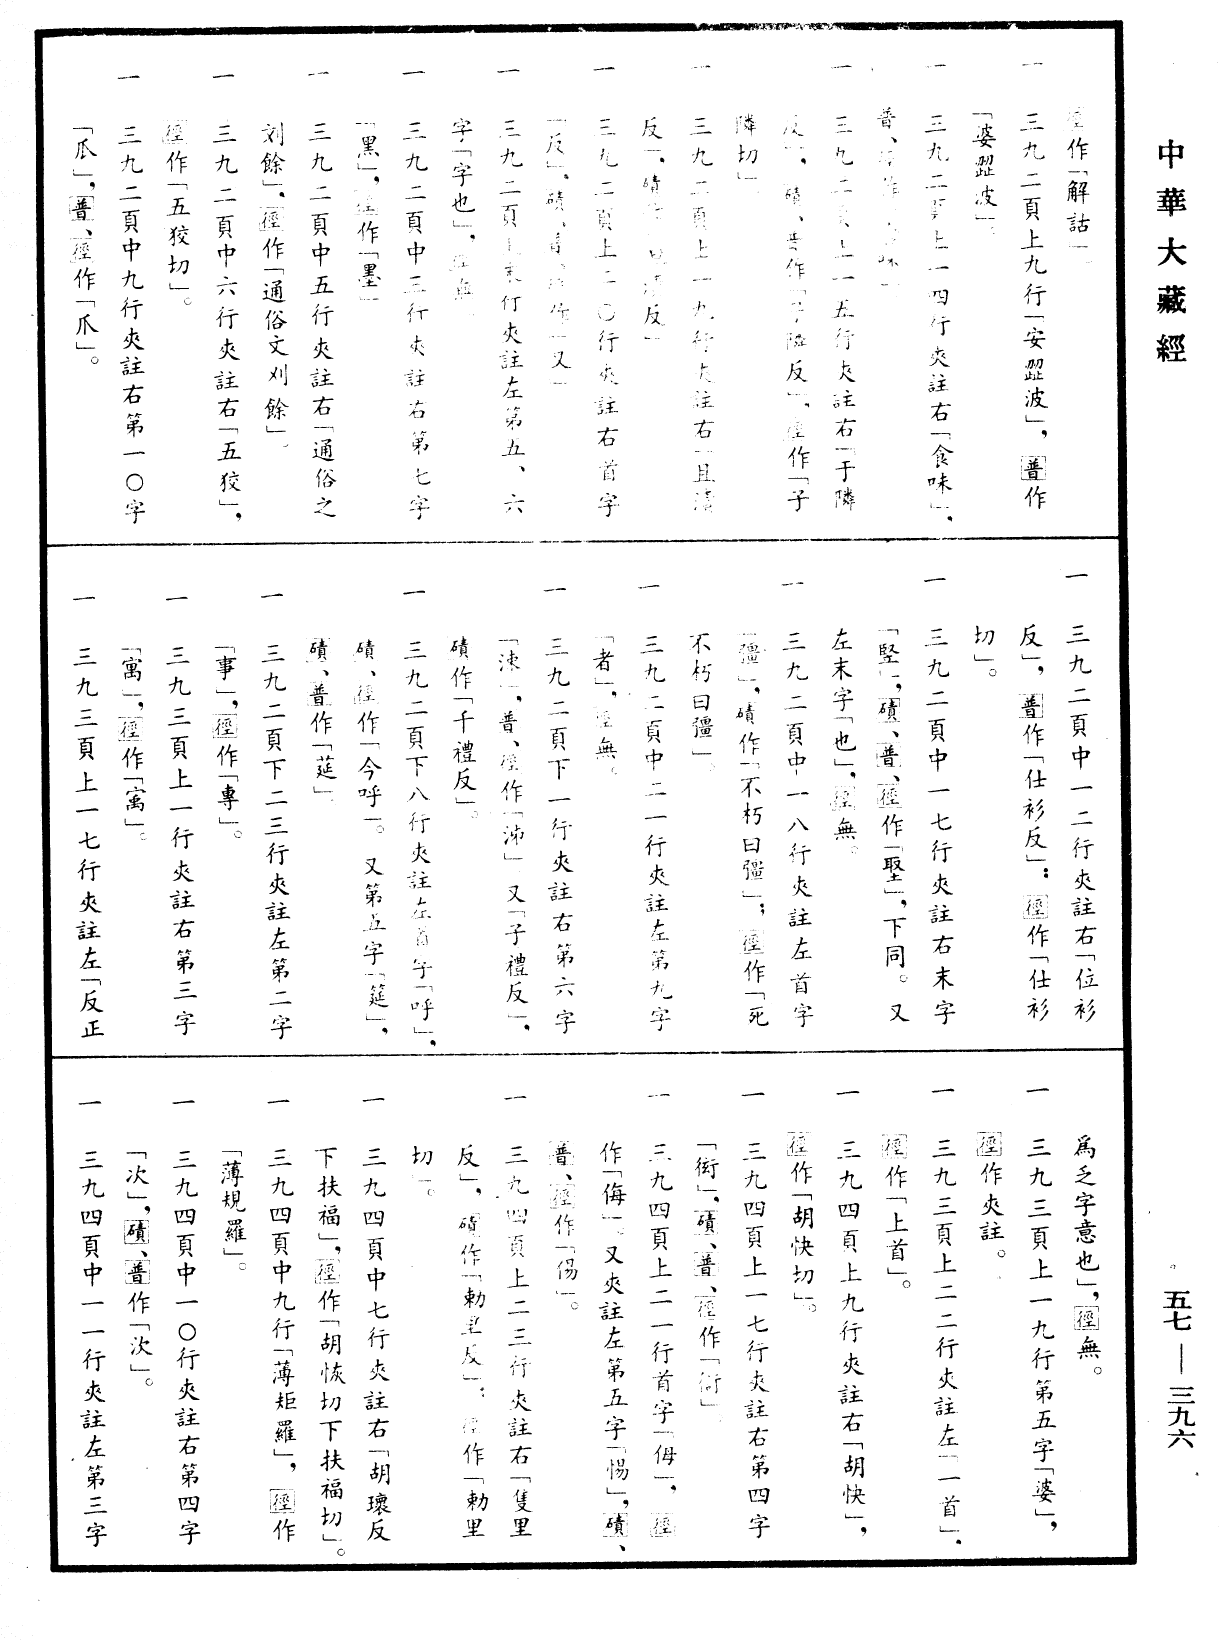 中華大藏經
徑作「解詁」
一 三九二頁上九行「安㽽波」，普作
「婆㽽波」。
一 三九二頁上一四行夾註右「食味」，
普、
一 三九二頁上一五行夾註右「于隣
反」，磧、普作「子隣反」，徑作「子
隣切」
一 三九二頁上一九行夾註右「且清
反」，磧
一 三九二頁上二〇行夾註右首字
「反」，磧、普、徑作「又」
一 三九二頁上末行夾註左第五、六
字「字也」，徑無
一 三九二頁中三行夾註右第七字
「黑」，徑作「墨」
一 三九二頁中五行夾註右「通俗之
刈餘」，徑作「通俗文刈餘」。
一 三九二頁中六行夾註右「五狡」，
徑作「五狡切」。
一 三九二頁中九行夾註右第一〇字
「瓜」，普、徑作「爪」。
一 三九二頁中一二行夾註右「位衫
反」，普作「仕衫反」；徑作「仕衫
切」。
一 三九二頁中一七行夾註右末字
「堅」，磧、普、徑作「埾」，下同。又
左末字「也」，徑無。
一 三九二頁中一八行夾註左首字
「彊」，磧作「不朽曰彊」；徑作「死
不朽曰彊」。
一 三九二頁中二一行夾註左第九字
「者」，徑無。
一 三九二頁下一行夾註右第六字
「涑」，普、徑作「沛」又「子禮反」，
磧作「千禮反」。
一 三九二頁下八行夾註左首字「呼」，
磧、徑作「今呼」。又第五字「筵」，
磧、普作「莚」
一 三九二頁下二三行夾註左第二字
「事」，徑作「專」。
一 三九三頁上一行夾註右第三字
「寓」，徑作「㝢」。
一 三九三頁上一七行夾註左「反正
爲乏字意也」，徑無。
一 三九三頁上一九行第五字「婆」，
徑作夾註。
一 三九三頁上二二行夾註左「一首」，
徑作「上首」。
一 三九四頁上九行夾註右「胡快」，
徑作「胡快切」。
一 三九四頁上一七行夾註右第四字
「銜」，磧、普、徑作「衒」
一 三九四頁上二一行首字「侮」，徑
作「侮」。又夾註左第五字「惕」，磧、
普、徑作「傷」。
一 三九四頁上二三行夾註右「隻里
反」，磧作「勅里反」；徑作「勅里
切」。
一 三九四頁中七行夾註右「胡瓌反
下扶福」，徑作「胡恢切下扶福切」。
一 三九四頁中九行「薄矩羅」，徑作
「薄規羅」。
一 三九四頁中一〇行夾註右第四字
「次」，磧、普作「㳄」。
一 三九四頁中一一行夾註左第三字
五七—三九六